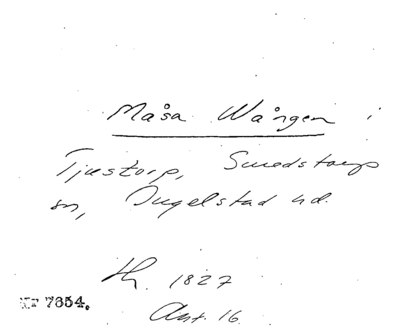 Måsa Wången i
Tjustorp, Smedstorp
sn, Ingelstad hd.
th. 1827
Ant. 16.
NF 7654.